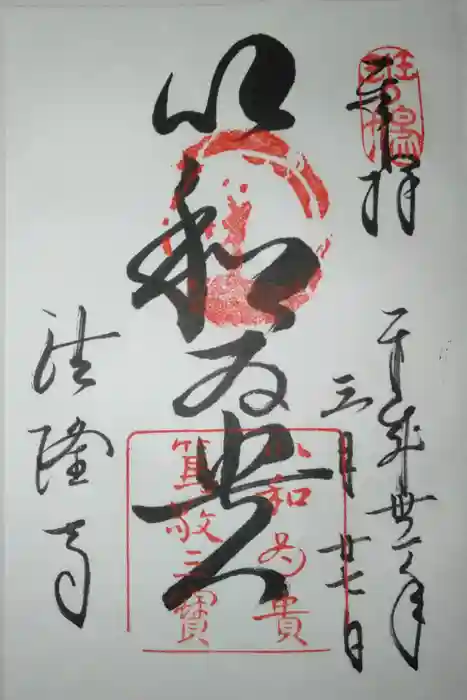 奉拝
平成廿一年
三月廿七日
以和為貴
以和為貴
篤敬三寶
法隆寺